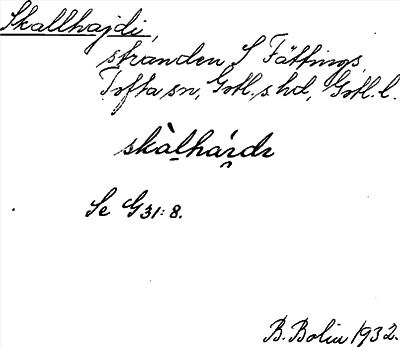 Skallhajdi,
stranden S Fättings,
Tofta sn, Gotl. s hd, Gotl. l.
skàlhá̯rdı
Se G31:8.
B. Bolin 1932.